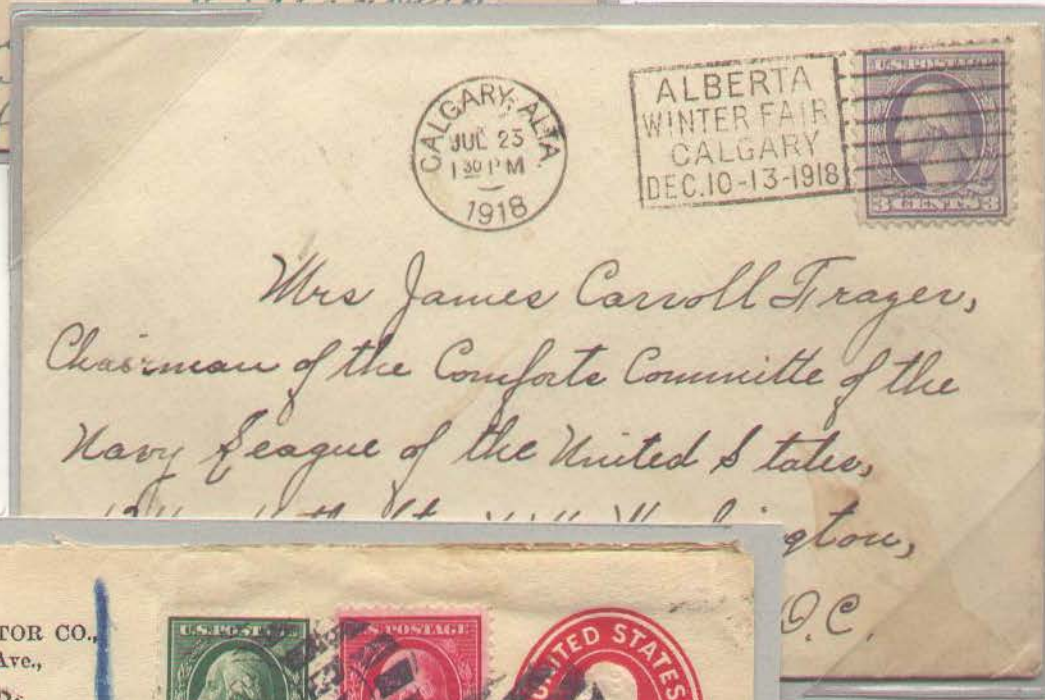 CALGARY, ALTA.
JUL 23
1 30 PM
1918
ALBERTA
WINTER FAIR
CALGARY
DEC. 10-13-1918
U.S. POSTAGE
3 CENTS 3
Mrs James Carroll Frazer,
Chairman of the Comforts Committe of the
Navy League of the United States,
Washington,
D.C.
TOR CO.,
Ave.,
U.S. POSTAGE
U.S. POSTAGE
UNITED STATES